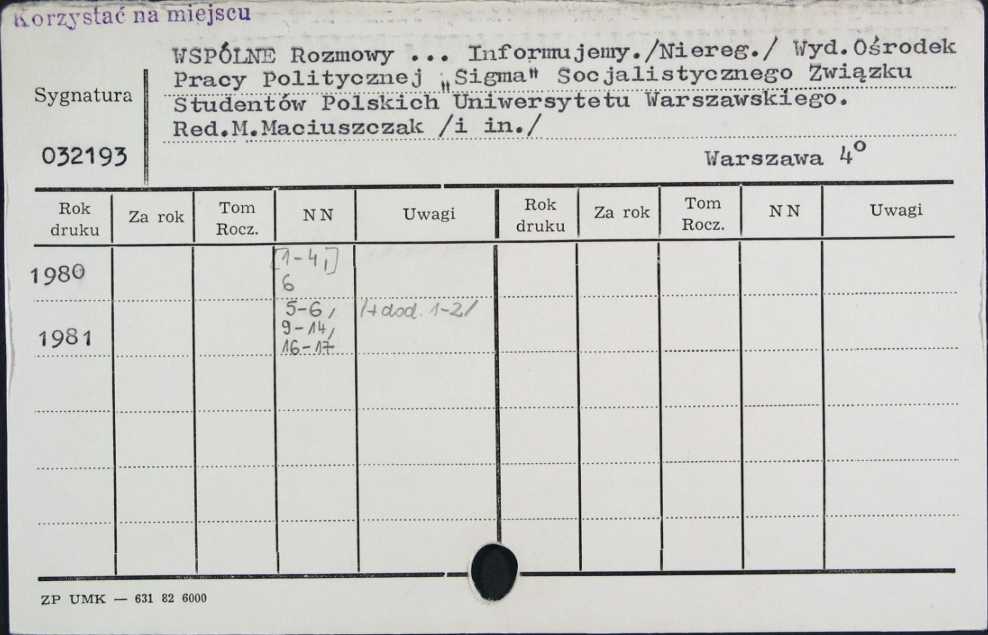 Korzystać na miejscu
WSPÓLNE Rozmowy ... Informujemy./Niereg./ Wyd.Ośrodek
Pracy Politycznej „Sigma" Socjalistycznego Związku
Studentów Polskich Uniwersytetu Warszawskiego.
Red.M.Maciuszczak /i in./
Sygnatura
032193
Warszawa 4o
Rok druku Za rok Tom Rocz. NN Uwagi Rok druku Za rok Tom Rocz. NN Uwagi
1980 [1-4,]
6
1981 5-6, /+dod. 1-2/
9-14,
16-17
ZP UMK — 631 82 6000